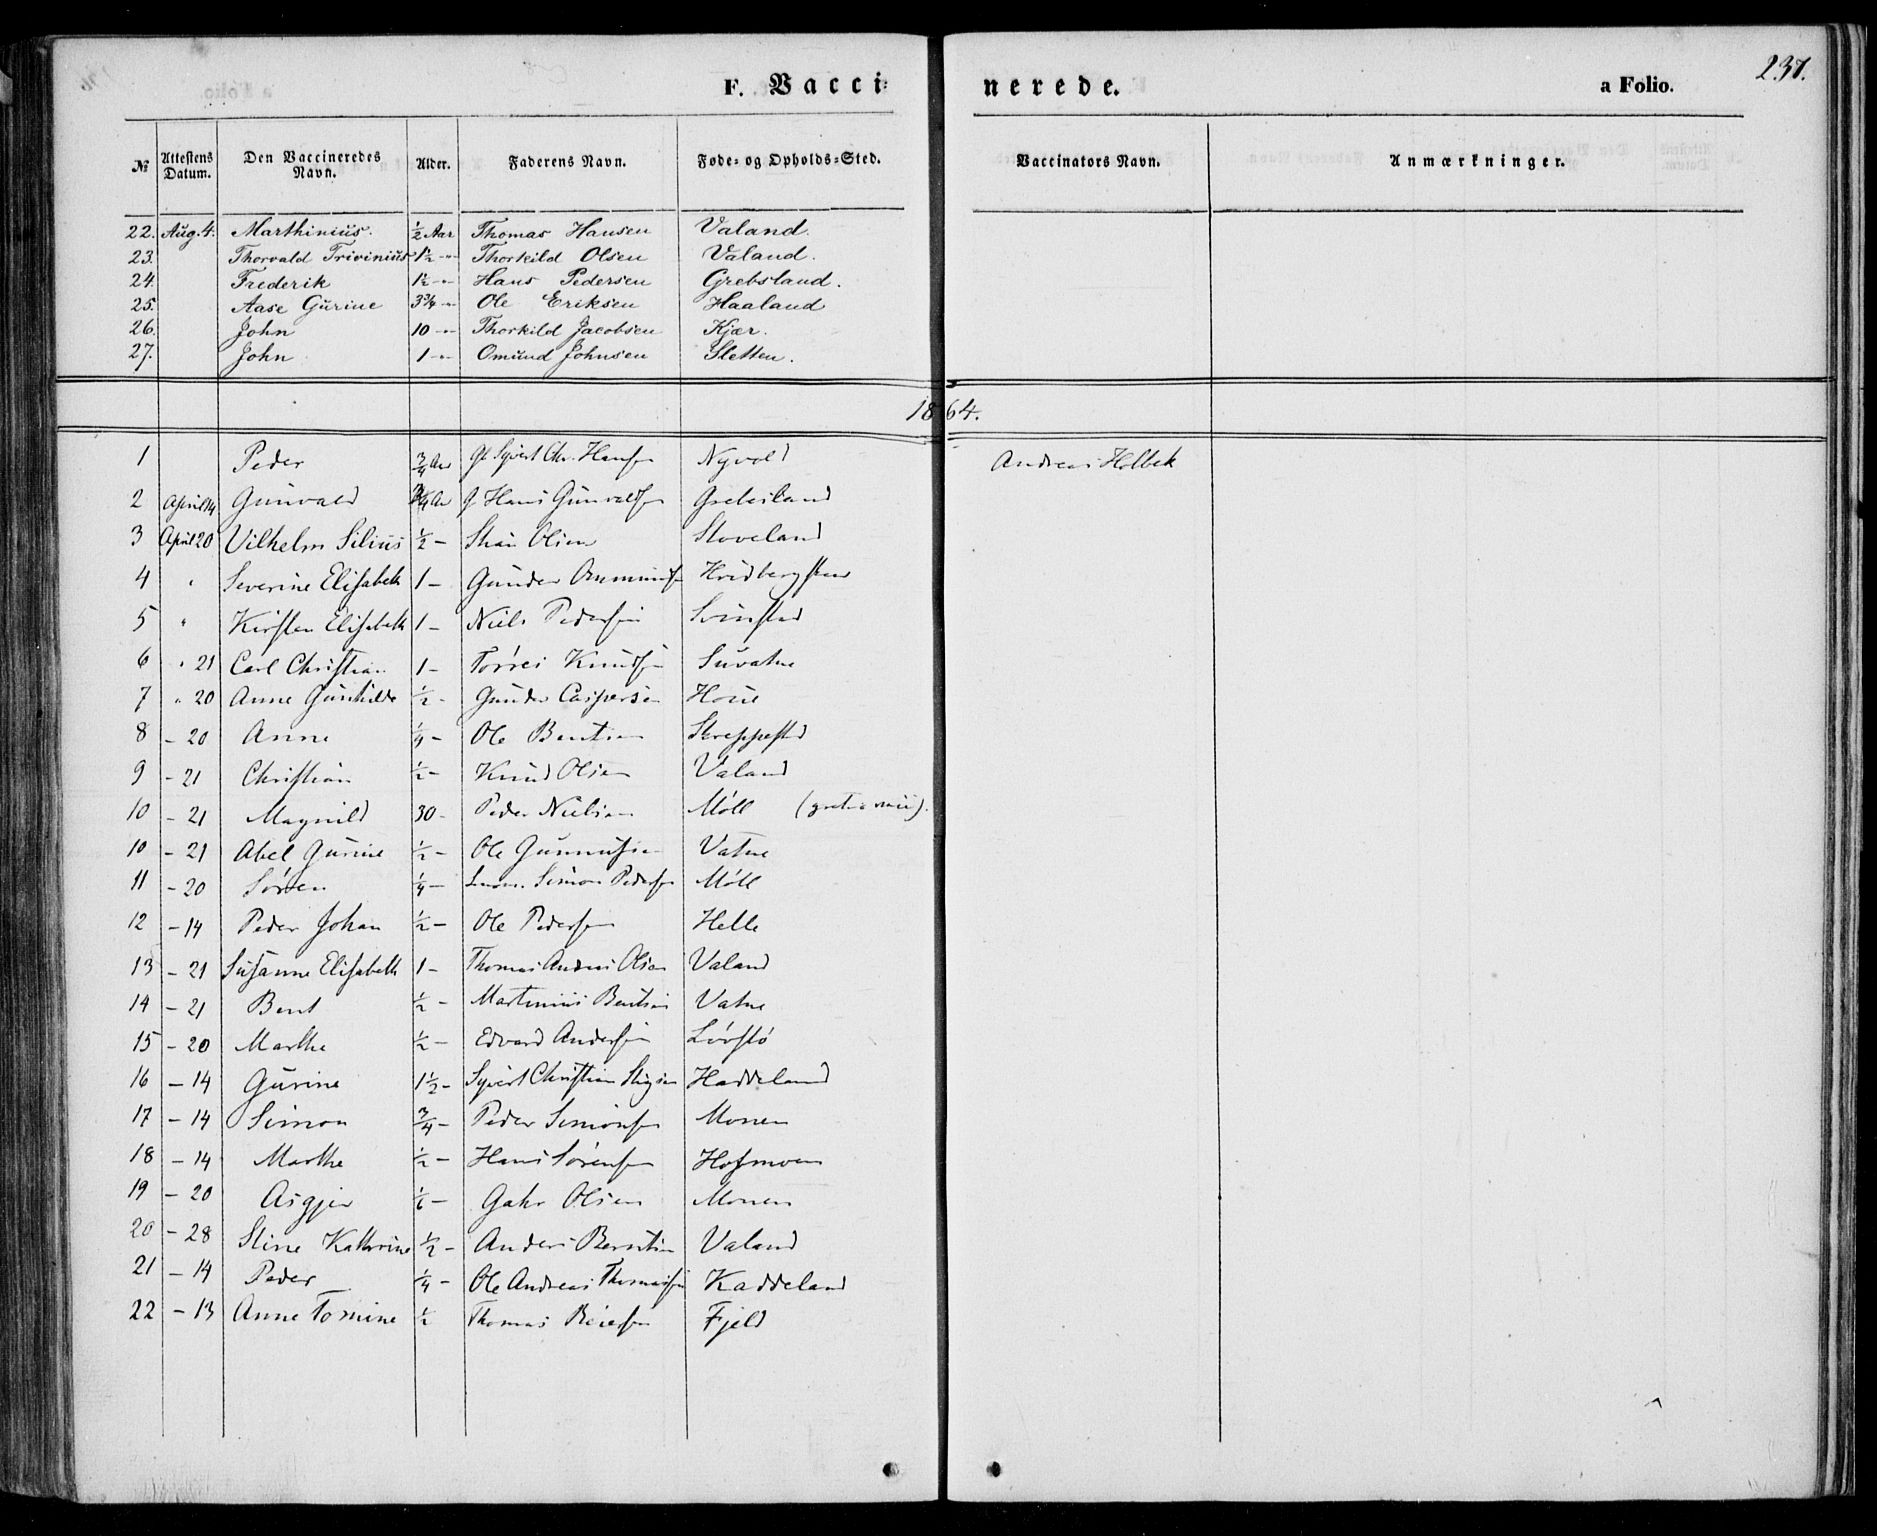 F. Vaccinerede. a Folio. 237.
№ Attestens Datum. Den Vaccineredes Navn. Alder. Faderens Navn. Føde- og Opholds-Sted. Vaccinators Navn. Anmærkninger.
22. Aug. 4. Marthinius. ½ Aar Thomas Hansen Valand.
23. Thorvald Trivinius 1½ -"- Thorkild Olsen Valand.
24. Frederik 1½ -"- Hans Pedersen Grebsland.
25. Aase Gurine 3¾ -"- Ole Eriksen Haaland
26. John 10 -"- Thorkild Jacobsen Kjær.
27. John 1 -"- Omund Johnsen Sletten.
1864.
1 Peder ¾ Aar Syvert Chr. Hansen Nyvold Andreas Holbek
2 April 14 Gunvald Hans Gunvaldsen Grebsland
3 April 20 Vilhelm Silius ½ - Olsen Stoveland
4 " Severine Elisabeth 1 - Gunder
5 " Kirsten Elisabeth 1 - Niels Pedersen
6 " 21 Carl Christian 1 - Torres Knudsen Suvatne
7 " 20 Anne Gunhilde ½ - Gunder Caspersen Houe
8 - 20 Anne ¼ - Ole Bentsen Skreppestad
9 - 21 Christian ½ - Knud Olsen Valand
10 - 21 Magnild 30 - Peder Nielsen Möll
10 - 21 Abel Gurine ½ - Ole Vatne
11 - 20 Sören ¼ - Simon Pedersen Möll
12 - 14 Peder Johan ½ - Ole Pedersen Helle
13 - 21 Susanne Elisabeth 1 - Thomas Andreas Olsen Valand
14 - 21 Bent ½ - Martinius Bentsen Vatne
15 - 20 Marthe ½ - Edvard Andersen Lövslö
16 - 14 Gurine 1½ - Syvert Christian Stigsen Haddeland
17 - 14 Simon ¾ - Peder Simonsen Monen
18 - 14 Marthe ½ - Hans Sörensen Hofmoen
19 - 20 Asgjer ⅙ - Gahr Olsen Monen
20 - 28 Stine Kathrine ½ - Anders Berntsen Valand
21 - 14 Peder ¼ - Ole Andreas Thomassen Kaddeland
22 - 13 Anne Tomine ½ Thomas Reiersen Fjeld